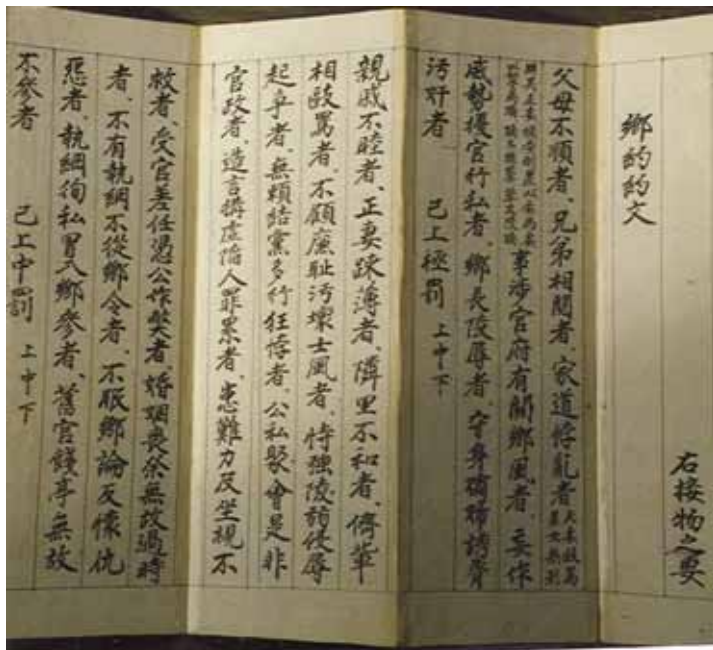 右接物之要
鄉約約文
父母不順者、兄弟相鬩者、家道悖亂者夫妻敺罵男女無別
以孽為嫡 嫡不撫孽 孽反陵嫡事涉官府有關鄉風者、妄作
威勢擾官行私者、鄉長陵辱者、守身孀婦誘脅
污奸者 已上極罰 上中下
親戚不睦者、正妻疎薄者、隣里不和者、儕輩
相敺罵者、不顧廉恥污壞士風者、恃強陵弱侵辱
起爭者、無賴結黨多行狂悖者、公私聚會是非
官政者、造言搆虛陷人罪累者、患難力及坐視不
救者、受官差任憑公作獘者、婚姻喪祭無故過時
者、不有執綱不從鄉令者、不服鄉論反懷仇
惡者、執綱徇私冒入鄉參者、舊官餞亭無故
不參者 已上中罰 上中下